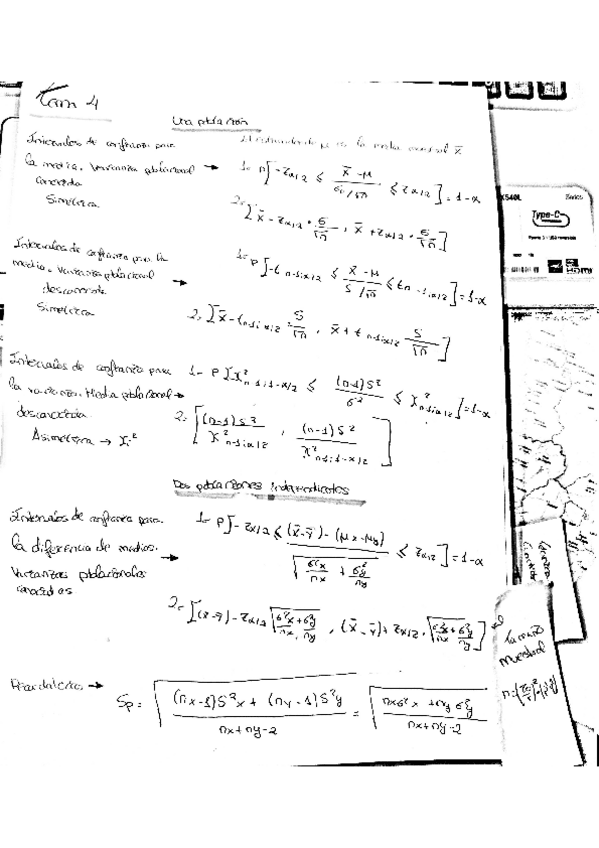 Tam 4
Una población
Intervalos de confianza para
la media. Varianza poblacional →
conocida
Simétrica
El estimador de μ es la media muestral x̄
1- P[-Zα/2 ≤ (x̄-μ)/(σ/√n) ≤ Zα/2] = 1-α
2- [x̄ - Zα/2 · σ/√n , x̄ + Zα/2 · σ/√n]
Intervalos de confianza para la
media. Varianza poblacional →
desconocida
Simétrica
1- P[-t n-1;α/2 ≤ (x̄-μ)/(S/√n) ≤ t n-1;α/2] = 1-α
2- [x̄ - t n-1;α/2 · S/√n , x̄ + t n-1;α/2 S/√n]
Intervalos de confianza para
la varianza. Media poblacional →
desconocida
Asimétrica → χ²
1- P[χ² n-1;1-α/2 ≤ (n-1)S²/σ² ≤ χ² n-1;α/2] = 1-α
2- [(n-1)S²/χ² n-1;α/2 , (n-1)S²/χ² n-1;1-α/2]
Dos poblaciones independientes
Intervalos de confianza para
la diferencia de medias.
Varianzas poblacionales →
conocidas
1- P[-Zα/2 ≤ ((x̄-ȳ) - (μx-μy))/√(σ²x/nx + σ²y/ny) ≤ Zα/2] = 1-α
2- [(x̄-ȳ) - Zα/2 √(σ²x/nx + σ²y/ny) , (x̄-ȳ) + Zα/2 · √(σ²x/nx + σ²y/ny)]
→
Sp = √(((nx-1)S²x + (ny-1)S²y)/(nx+ny-2)) = √((nxσ²x + nyσ²y)/(nx+ny-2))
Tamaño
muestral
X540L
Series
Type-C
HDMI